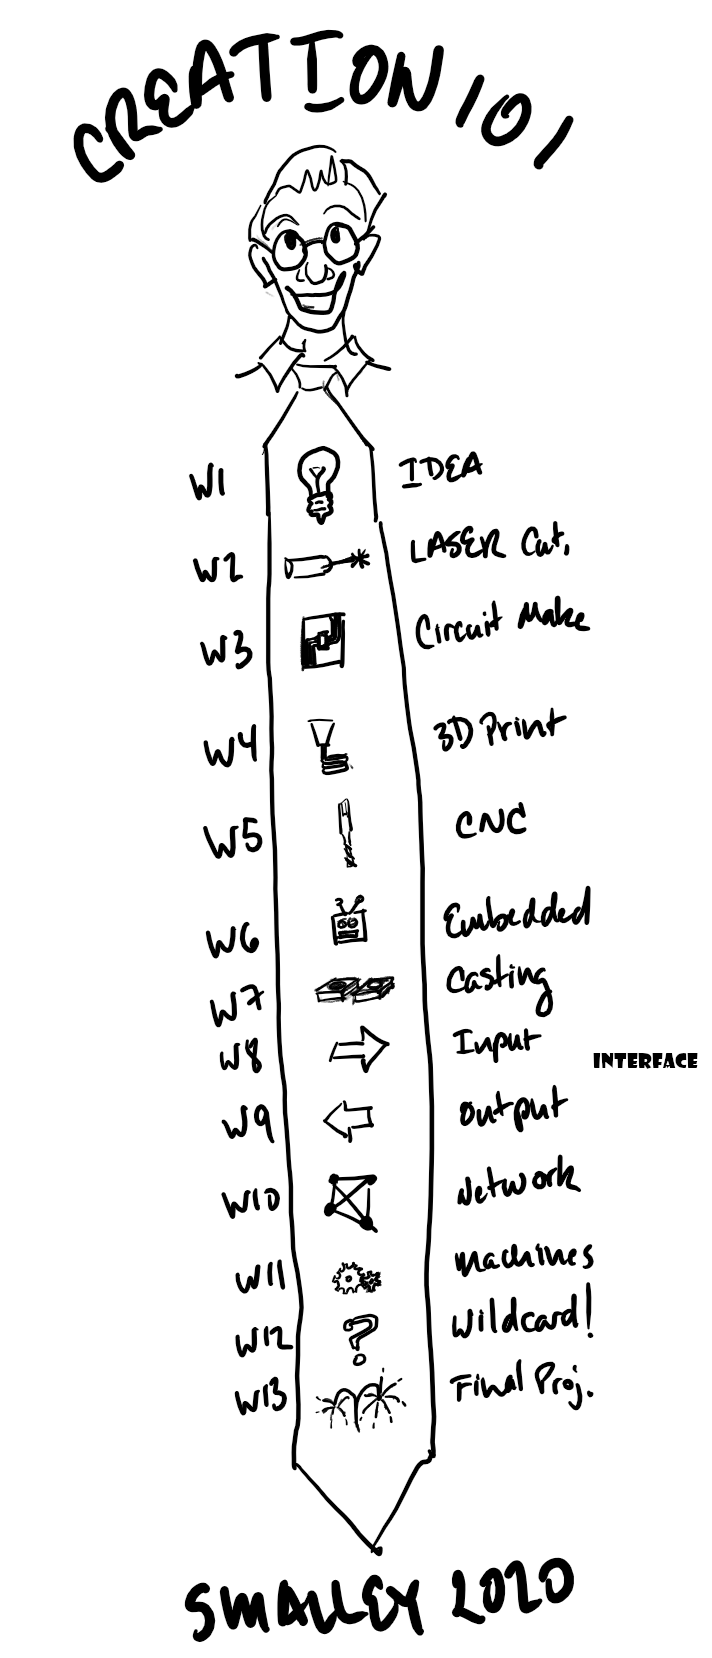 CREATION 101
W1 IDEA
W2 LASER Cut.
W3 Circuit Make
W4 3D Print
W5 CNC
W6 Embedded
W7 Casting
W8 Input
INTERFACE
W9 Output
W10 Network
W11 machines
W12 ? Wildcard!
W13 Final Proj.
SMALLEY 2020